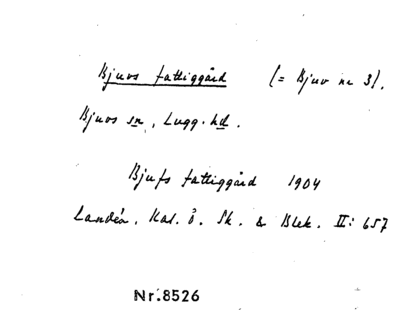 Bjuvs fattiggård (= Bjuv nr 3).
Bjuvs sn, Lugg. hd.
Bjufs fattiggård 1904
Landén, Kal. ö. Sk. & Blek. II: 657
Nr.8526